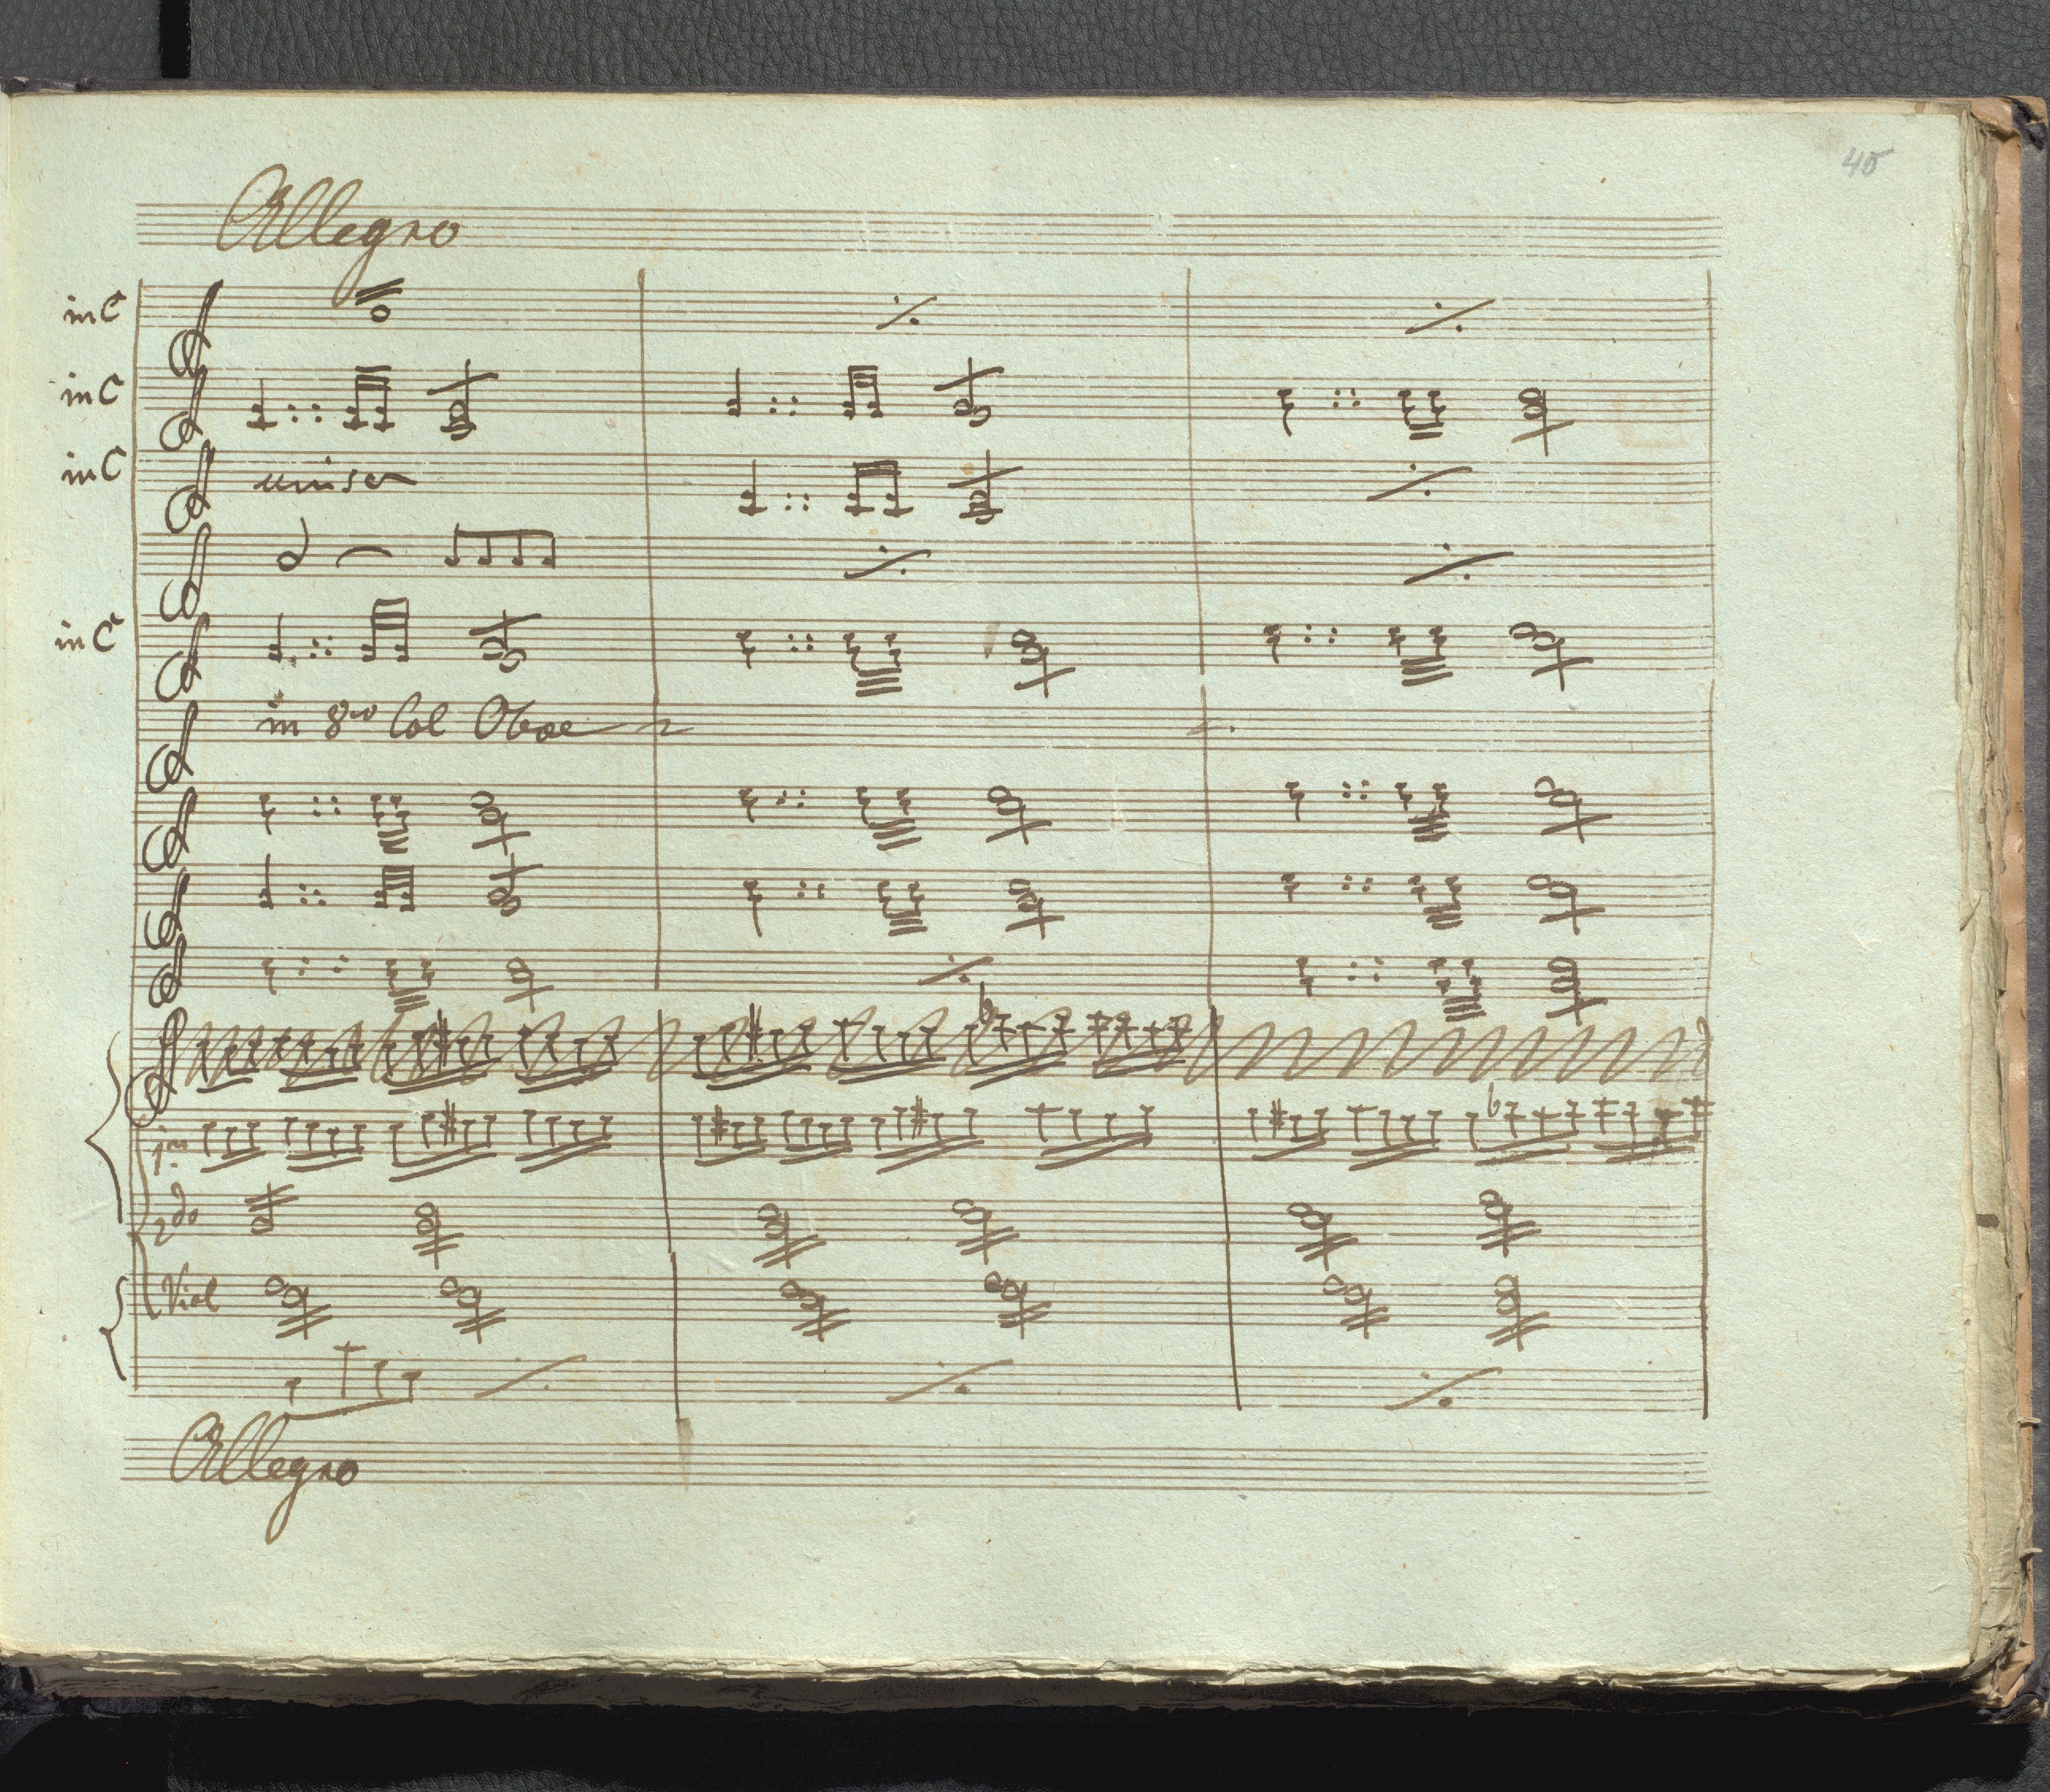 45
Allegro
in C
in C
in C unison
in C
in 8va Col Oboe
1mo
2do
Viol
Allegro